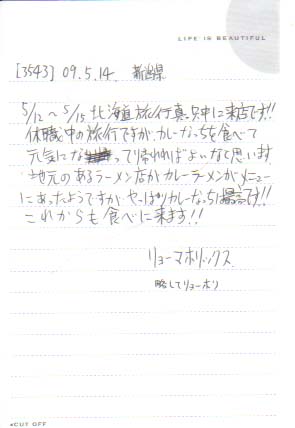 LIFE IS BEAUTIFUL
[3543] 09.5.14. 新潟県
5/12～5/15 北海道旅行真只中に来店です!!
休職中の旅行ですが、カレーなっちを食べて
元気になって帰れればよいなと思います
地元のあるラーメン店がカレーラーメンがメニュー
にあったようですが、やっぱりカレーなっちは最高です!!
これからも食べに来ます!!
リョーマホリックス
略してリョーホリ
CUT OFF